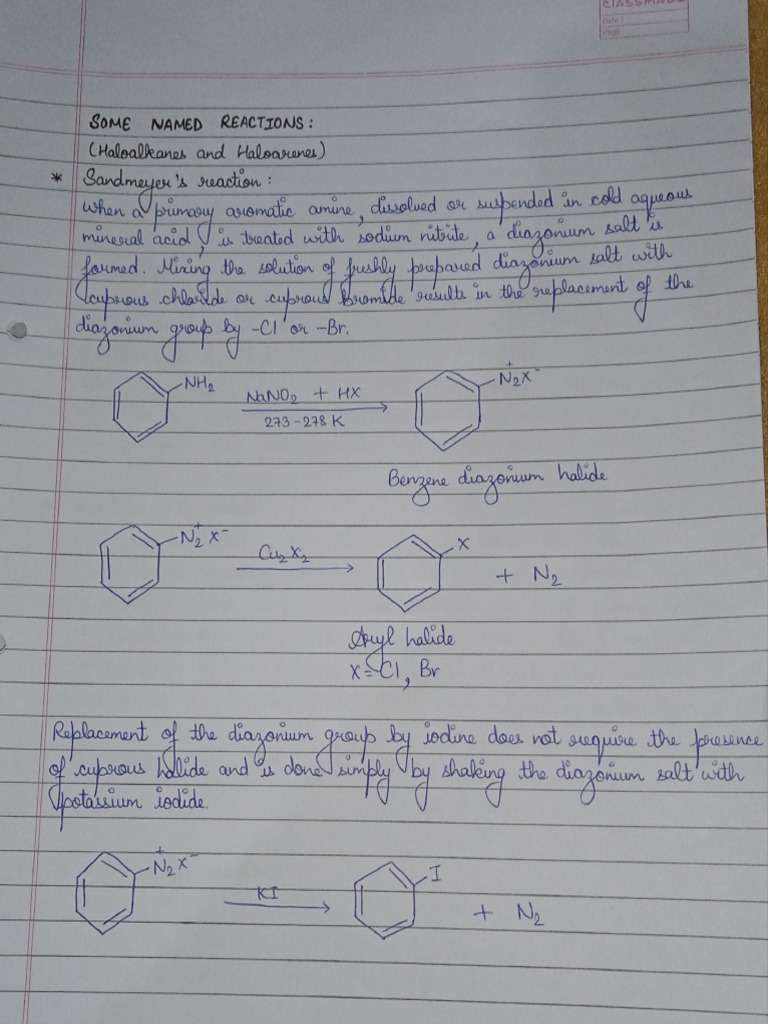 CLASSMATE
Date
Page
SOME NAMED REACTIONS:
(Haloalkanes and Haloarenes)
* Sandmeyer's reaction:
When a primary aromatic amine, dissolved or suspended in cold aqueous
mineral acid, is treated with sodium nitrite, a diazonium salt is
formed. Mixing the solution of freshly prepared diazonium salt with
cuprous chloride or cuprous bromide results in the replacement of the
diazonium group by -Cl or -Br.
NH₂ NaNO₂ + HX N₂⁺X⁻
273-278 K
Benzene diazonium halide
N₂⁺X⁻ Cu₂X₂ X + N₂
Aryl halide
X=Cl, Br
Replacement of the diazonium group by iodine does not require the presence
of cuprous halide and is done simply by shaking the diazonium salt with
potassium iodide.
N₂⁺X⁻ KI I + N₂